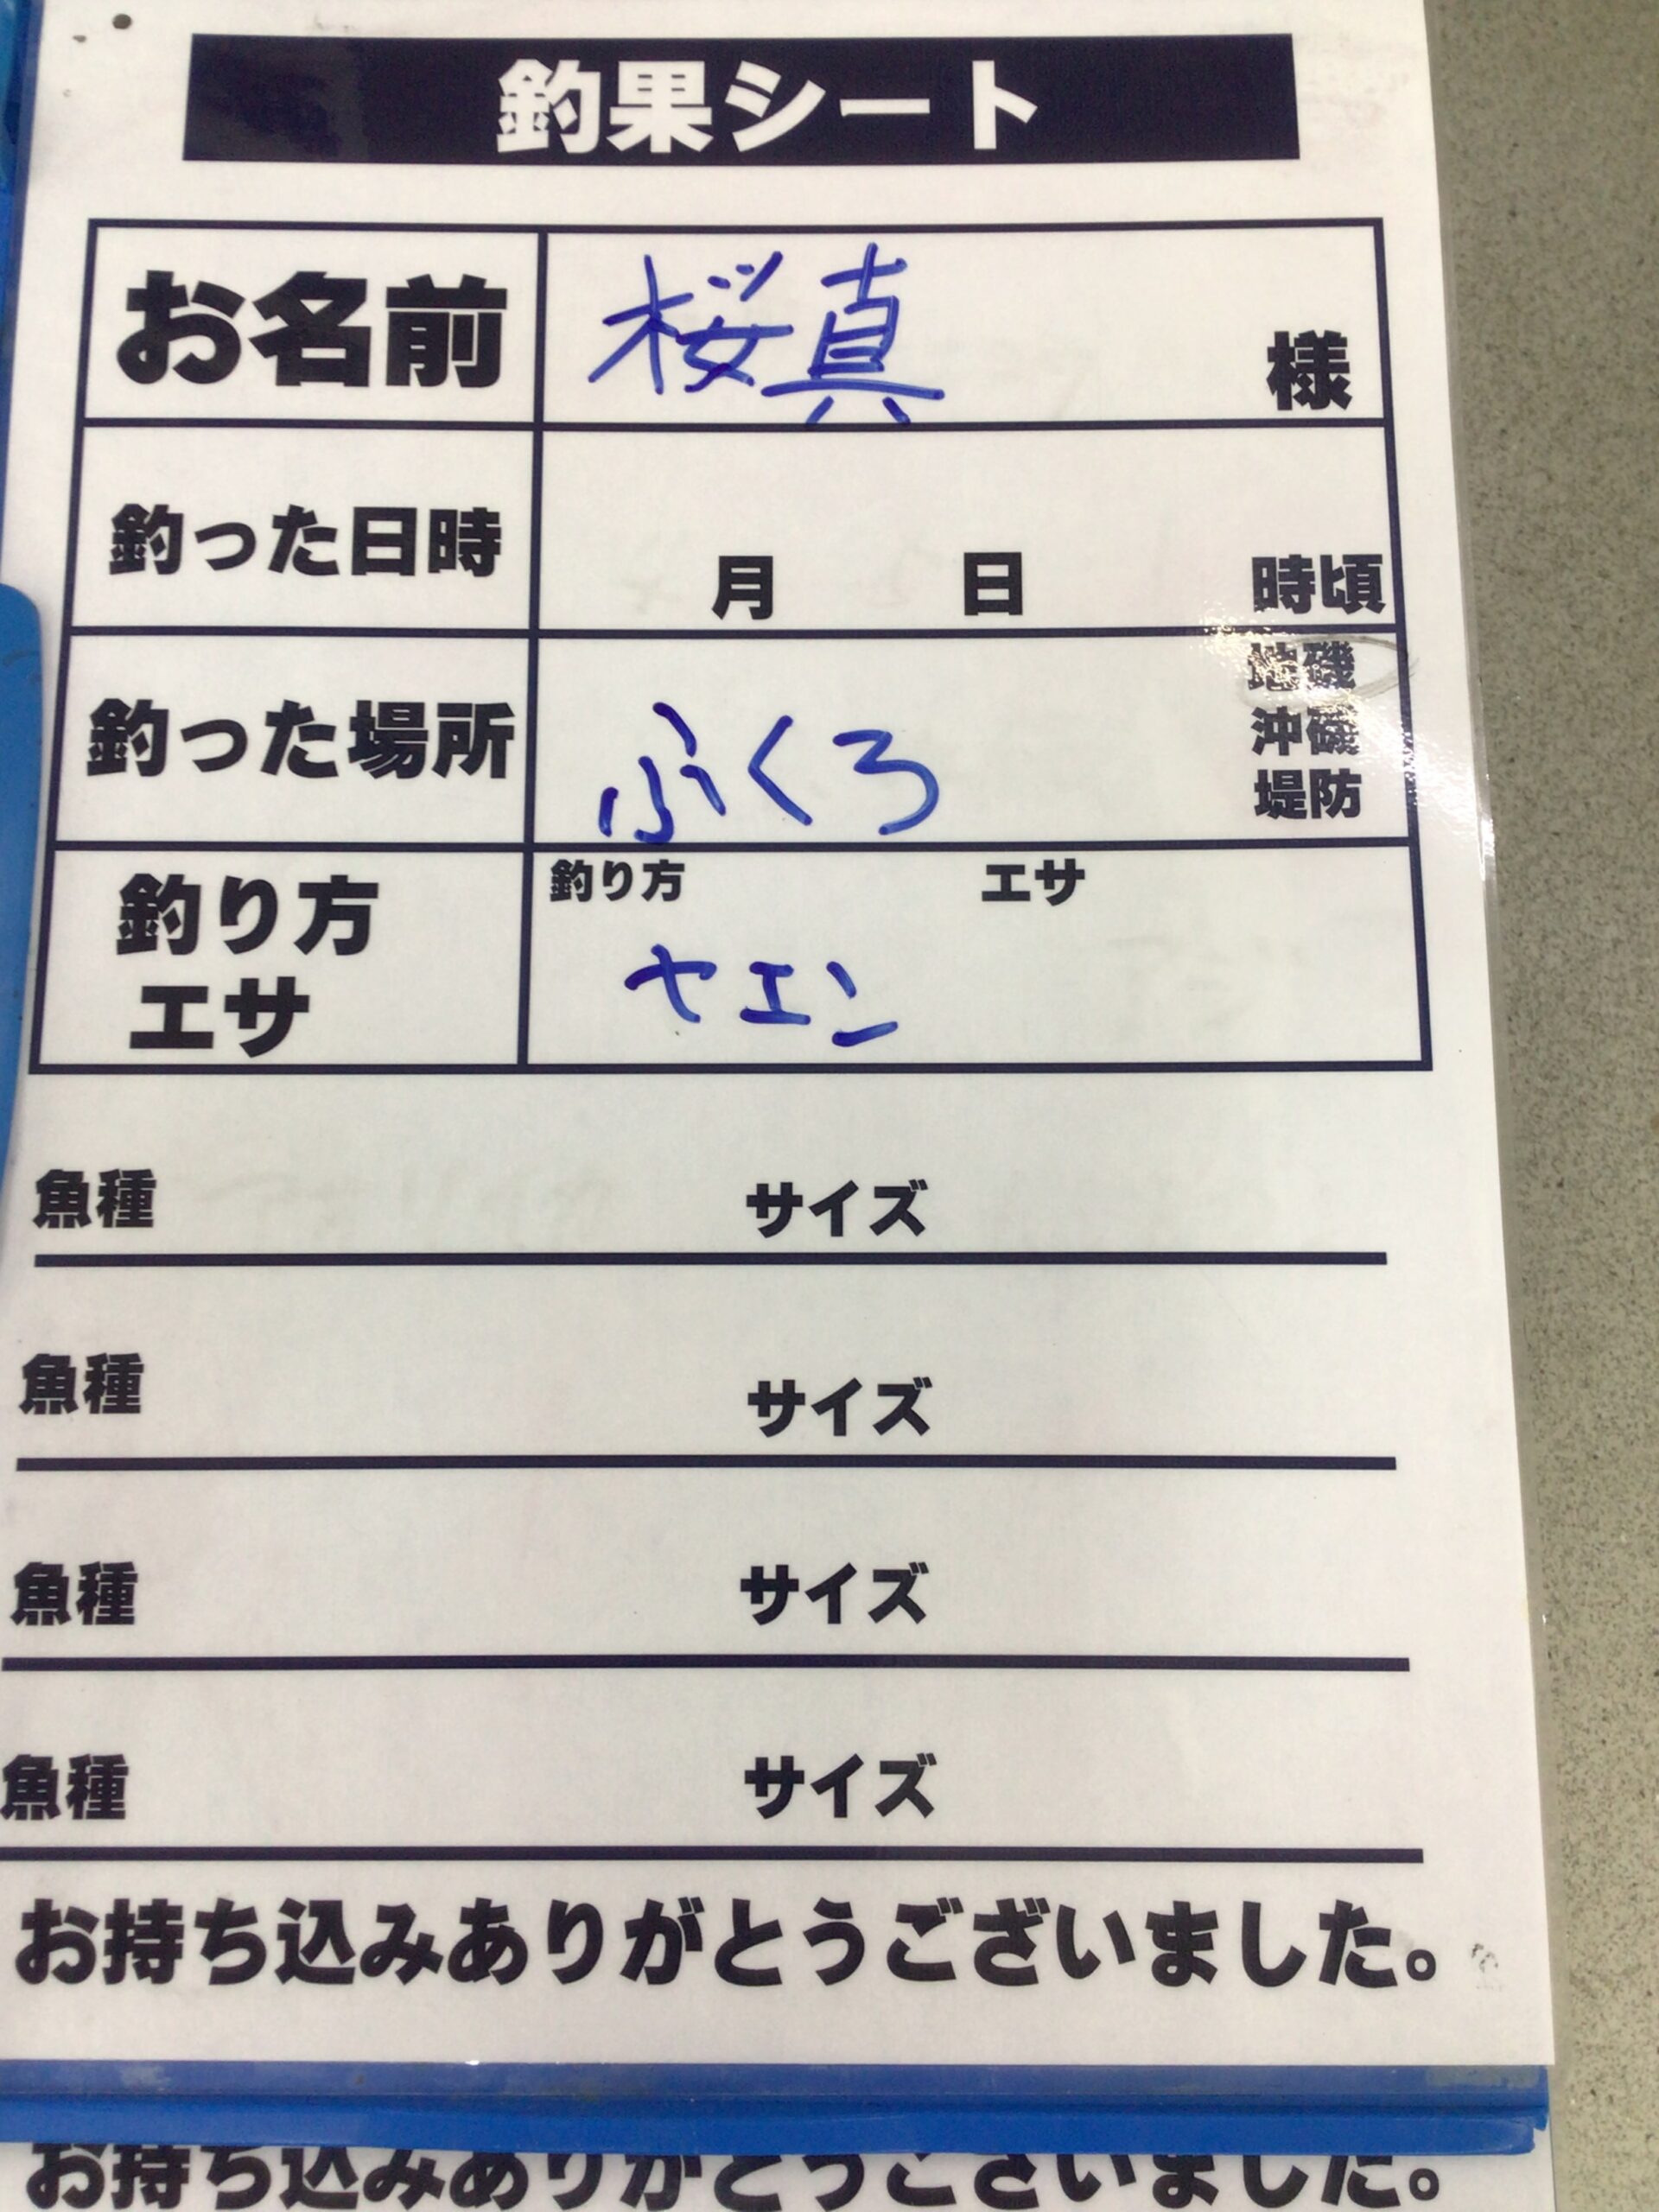 釣果シート
お名前 桜真 様
釣った日時 月 日 時頃
釣った場所 ふくろ 地磯
沖磯
堤防
釣り方 エサ
釣り方
エサ
ヤエン
魚種 サイズ
魚種 サイズ
魚種 サイズ
魚種 サイズ
お持ち込みありがとうございました。
お持ち込みありがとうございました。